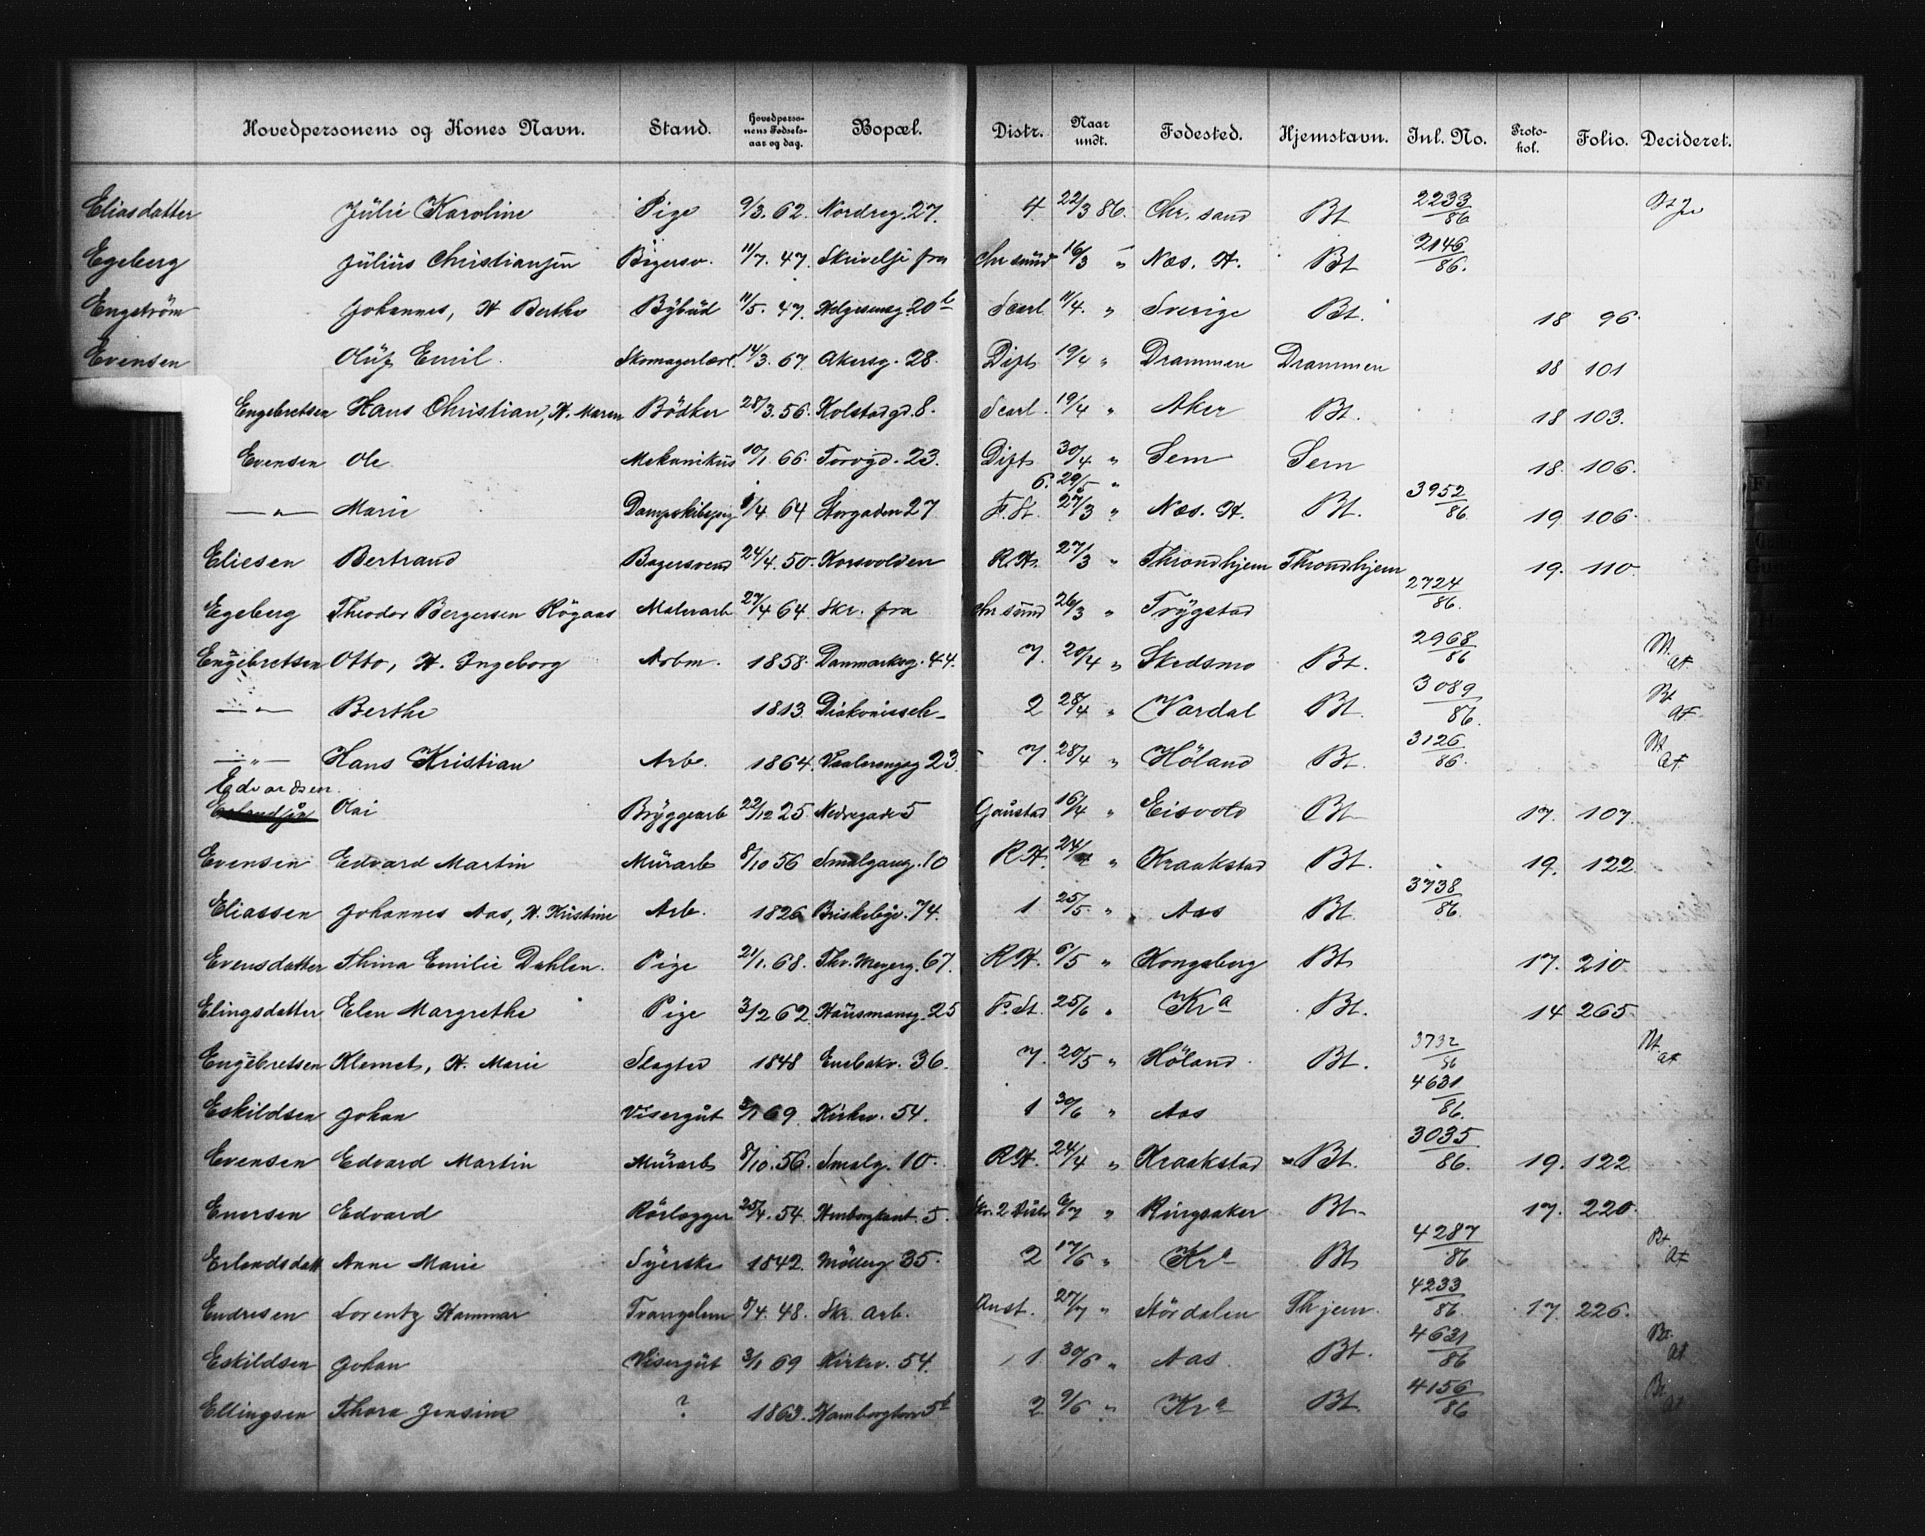 Hovedpersonens og Kones Navn. Stand. Hovedperso-nens Fødsels-aar og dag. Bopæl. Distr. Naar undt. Fødested. Hjemstavn. Inl. No. Proto-kol. Folio. Decideret.
Eliasdatter Julie Karoline Pige 9/3. 62. Nordreg. 27. 4 22/3 86. Chr. sand Bt 2233/86 Bt
Egeberg Julius Christiansen Bøgersv. 11/7. 47. Skrivelse fra Chr sund 16/3 " Næs. H. Bt 2146/86.
Engstrøm Johannes, H Berthe Bybud 11/5. 47. Helgesensg 20 b Scarl 11/4. " Sverige Bt. 18 96.
Evensen Oluf Emil. Skomagerlærl. 14/3. 67. Akersg. 28. Dift 19/4 " Drammen Drammen 18 101
Engebretsen Hans Christian, H. Maren Bødker 28/3. 56. Holstadgd. 8. Scarl. 19/4 " Aker Bt. 18 103.
Evensen Ole Mekanikus 10/1 66. Torvgd. 23. Dift 30/4 " Sem Sem 18. 106.
6. 29/5 "
—"— Marie Dampskibspig 1/4 64 Storgaden 27 F. St. 27/3 " Næs. H. Bt. 3952/86 19 106.
Eliesen Bertrand Bagersvend 24/4. 50. Korsvolden R.H. 27/3 " Throndhjem Throndhjem 19. 110.
Egeberg Theodor Bergersen Røgaas Malerarb 27/4 64. Skr. fra Chr sund 26/3 " Trygstad 2724/86.
Engebretsen Otto, H. Ingeborg Arbm. 1858. Danmarksg. 44. 7. 20/4 " Skedsmo Bt. 2968/86 Bt. at
—"— Berthe 1813. Diakonisseh. 2 28/4 " Vardal Bt. 3089/86. Bt at
—"— Hans Kristian Arb. 1864. Vaalerengag 23. 7. 28/4 " Høland Bt. 3126/86. Bt at
Edvardsen.
Olai Bryggearb 22/12 25. Nedregade 5 Gaustad 16/4 " Eisvold Bt 17. 107.
Evensen Edvard Martin Murarb 8/10 56 Smalgang. 10 R.H. 24/4 " Kraakstad Bt. 19. 122.
Eliassen Johannes Aas, H. Kristine Arb. 1826 Briskebyv. 74. 1 25/5. " Aas Bt. 3738/86.
Evensdatter Thina Emilie Dahlen. Pige 21/1. 68. Thv. Meyerg. 67. R.H. 6/5 " Kongsberg Bt 17. 210.
Elingsdatter Elen Margrethe Pige 3/12 62. Hausmansg. 25 F. St. 25/6 " Kr a Bt. 14 265.
Engebretsen Klemet, H. Marie Slagter 1848 Enebakv. 36. 7. 20/5 " Høland. Bt. 3732/86 Bt. at
Eskildsen Johan Visergut 3/1 69. Kirkev. 54. 1 30/6 " Aas 4631/86.
Evensen Edvard Martin Murarb 8/10. 56. Smalg. 10. R.H. 24/4 " Kraakstad Bt. 3035/86. 19. 122.
Enersen Edvard Rørlægger 25/4. 54. 5. Skr. 2 Distr 6/7 " Ringsaker Bt. 17. 220.
Erlandsdatt Anne Marie Syerske 1842. Møllerg 35. 2 17/6 " Kr a Bt 4287/86 Bt. at
Endresen Lorentz Hammer 8/4. 48. Skr. Arb. Anst. 27/7 " Størdalen Thjem. 4233/86. 17. 226.
Eskildsen Johan Visergut 3/1 69 Kirkev. 54. 1 30/6 " Aas Bt. 4631/86 Bt. at
Ellingsen Thora Jensine ? 1863. 5b 2 9/6 " Kr a Bt. 4156/86 Bt at